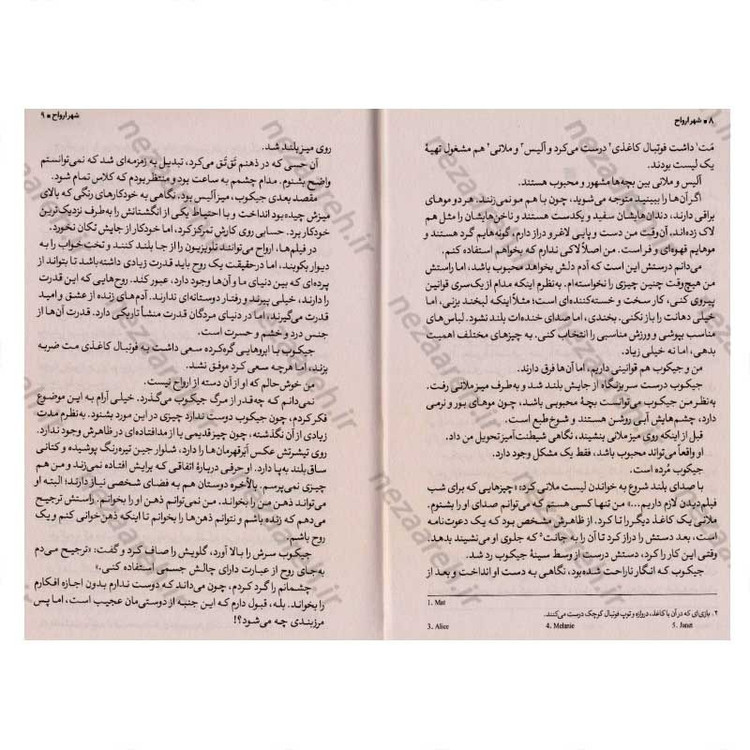 ۸ • شهر ارواح
مَت¹ داشت فوتبال کاغذی² درست می‌کرد و آلیس³ و ملانی⁴ هم مشغول تهیهٔ
یک لیست بودند.
آلیس و ملانی بین بچه‌ها مشهور و محبوب هستند.
اگر آن‌ها را ببینید متوجه می‌شوید، چون با هم مو نمی‌زنند. هر دو موهای
براقی دارند، دندان‌هایشان سفید و یکدست هستند و ناخن‌هایشان را مثل هم
لاک زده‌اند، آن‌وقت من دست و پایی لاغر و دراز دارم، گونه‌هایم گرد هستند و
موهایم قهوه‌ای و فر است. من اصلاً لاکی ندارم که بخواهم استفاده کنم.
می‌دانم درستش این است که آدم دلش بخواهد محبوب باشد، اما راستش
من هیچ‌وقت چنین چیزی را نخواسته‌ام. به‌نظرم اینکه مدام از یک‌سری قوانین
پیروی کنی، کار سخت و خسته‌کننده‌ای است؛ مثلاً اینکه لبخند بزنی، اما
خیلی دهانت را باز نکنی. بخندی، اما صدای خنده‌ات بلند نشود. لباس‌های
مناسب بپوشی و ورزش مناسبی را انتخاب کنی. به چیزهای مختلف اهمیت
بدهی، اما نه خیلی زیاد.
من و جیکوب هم قوانینی داریم، اما آن‌ها فرق دارند.
جیکوب درست سر بزنگاه از جایش بلند شد و به‌طرف میز ملانی رفت.
به‌نظر من جیکوب می‌توانست بچهٔ محبوبی باشد، چون موهای بور و نرمی
دارد، چشم‌هایش آبی روشن هستند و شوخ‌طبع است.
قبل از اینکه روی میز ملانی بنشیند، نگاهی شیطنت‌آمیز تحویل من داد.
او واقعاً می‌تواند محبوب باشد، فقط یک مشکل وجود دارد.
جیکوب مُرده است.
با صدای بلند شروع به خواندن لیست ملانی کرد: «چیزهایی که برای شب
فیلم‌دیدن لازم داریم...» من تنها کسی هستم که می‌توانم صدای او را بشنوم.
ملانی یک کاغذ دیگر را تا کرد. از ظاهرش مشخص بود که یک دعوت‌نامه
است، بعد دستش را دراز کرد تا آن را به جانت⁵ که جلوی او می‌نشیند بدهد.
وقتی این کار را کرد، دستش درست از وسط سینهٔ جیکوب رد شد.
جیکوب که انگار ناراحت شده بود، نگاهی به دست او انداخت و بعد از
1. Mat
۲. بازی‌ای که در آن با کاغذ، دروازه و توپ فوتبال کوچک درست می‌کنند.
3. Alice 4. Melanie 5. Janet
شهر ارواح • ۹
روی میز بلند شد.
آن حسی که در ذهنم تَق‌تَق می‌کرد، تبدیل به زمزمه‌ای شد که نمی‌توانستم
واضح بشنوم. مدام چشمم به ساعت بود و منتظر بودم که کلاس تمام شود.
مقصد بعدی جیکوب، میز آلیس بود. نگاهی به خودکارهای رنگی که بالای
میزش چیده بود انداخت و با احتیاط یکی از انگشتانش را به‌طرف نزدیک‌ترین
خودکار برد. حسابی روی کارش تمرکز کرد، اما خودکار از جایش تکان نخورد.
در فیلم‌ها، ارواح می‌توانند تلویزیون را از جا بلند کنند و تخت‌خواب را به
دیوار بکوبند، اما درحقیقت یک روح باید قدرت زیادی داشته‌باشد تا بتواند از
پرده‌ای که بین دنیای ما و آن‌ها وجود دارد، عبور کند. روح‌هایی که این قدرت
را دارند، خیلی پیرند و رفتار دوستانه‌ای ندارند. آدم‌های زنده از عشق و امید
قدرت می‌گیرند، اما در دنیای مردگان قدرت منشأ تاریکی دارد. قدرت آن‌ها از
جنس درد و خشم و حسرت است.
جیکوب با ابروهایی گره‌کرده سعی داشت به فوتبال کاغذی مت ضربه
بزند، اما هرچه سعی کرد موفق نشد.
من خوش‌حالم که او از آن دسته از ارواح نیست.
نمی‌دانم که چه‌قدر از مرگ جیکوب می‌گذرد. خیلی آرام به این موضوع
فکر کردم، چون جیکوب دوست ندارد چیزی در این مورد بشنود. به‌نظرم مدت
زیادی از آن نگذشته، چون چیز قدیمی یا از مدافتاده‌ای در ظاهرش وجود ندارد.
روی تیشرتش عکس اَبَرقهرمان‌ها را دارد، شلوار جین تیره‌رنگ پوشیده و کتانی
ساق‌بلند به‌پا دارد. او حرفی دربارهٔ اتفاقی که برایش افتاده نمی‌زند و من هم
چیزی نمی‌پرسم. بالأخره دوستان هم به فضای شخصی نیاز دارند؛ البته او
می‌تواند ذهن من را بخواند. من نمی‌توانم ذهن او را بخوانم. راستش ترجیح
می‌دهم که زنده باشم و نتوانم ذهن‌ها را بخوانم تا اینکه ذهن‌خوانی کنم و یک
روح باشم.
جیکوب سرش را بالا آورد، گلویش را صاف کرد و گفت: «ترجیح می‌دم
به‌جای روح از عبارت دارای چالش جسمی استفاده کنی.»
چشمانم را گرد کردم، چون می‌داند که دوست ندارم بدون اجازه افکارم
را بخواند. بله، قبول دارم که این جنبه از دوستی‌مان عجیب است، اما پس
مرزبندی چه می‌شود؟!
nezaareh.ir